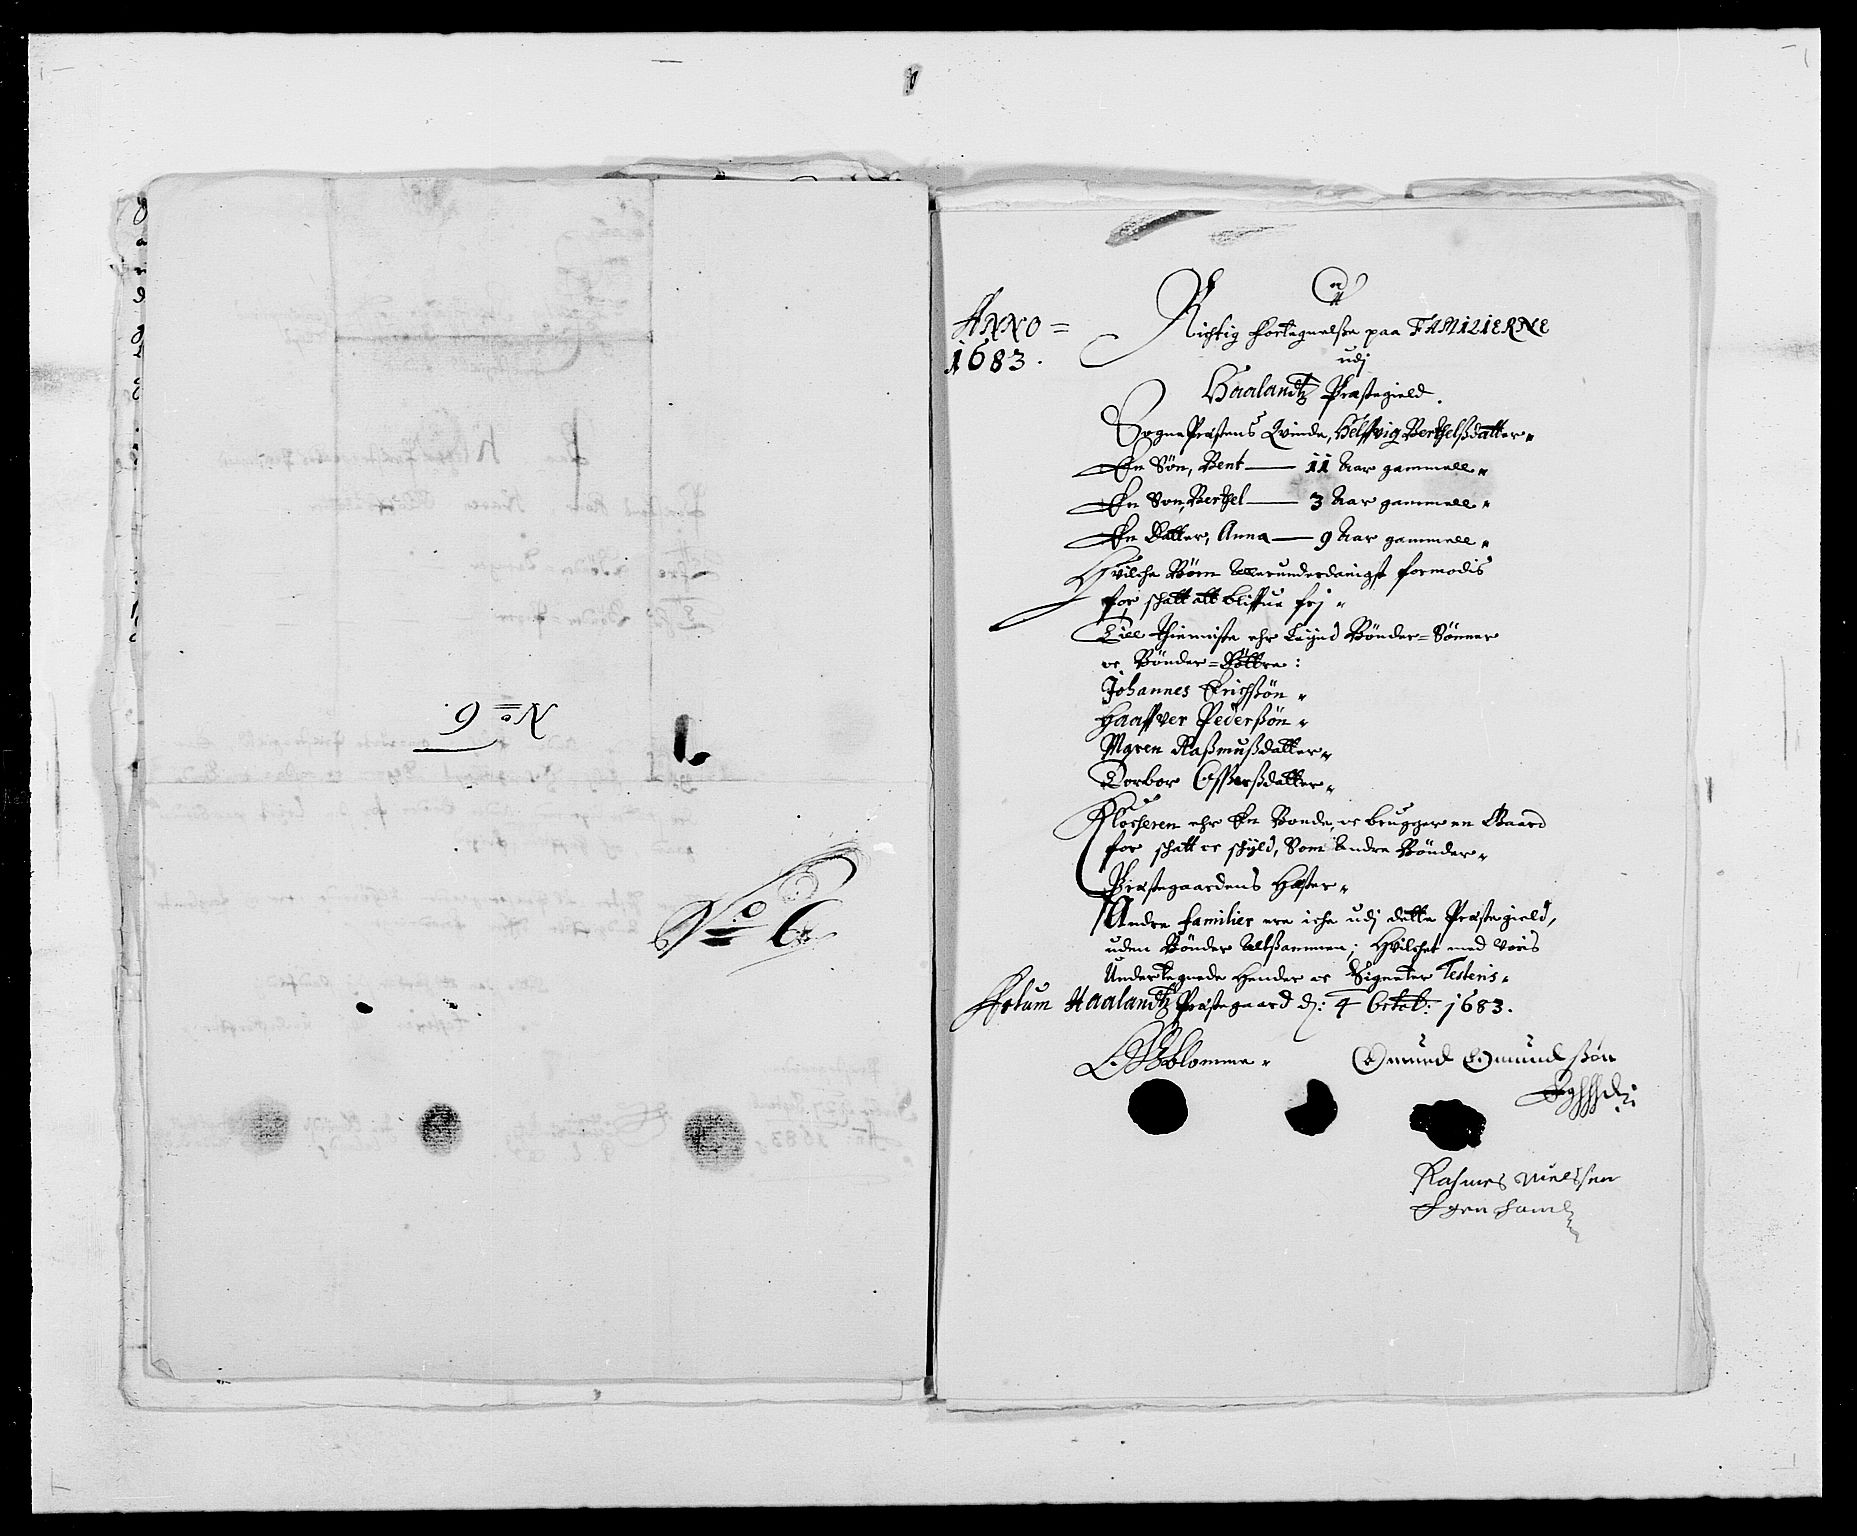 No 6.
No 6
ANNO =
1683.
Richtig Fortegnelsse paa FAMILIERNE
udj
Haalandtz Præstegield.
SognePræstens Qvinde, Helffvig Berthelsdatter
En Søn, Bent — 11 Aar gammell
En Søn, Berthel — 3 Aar gammell
En Datter, Anna — 9 Aar gammell
Hvilche Børn Allerunderdanigst formodis
for schatt att bliffue frj
Till thienniste ehr Leyed Bønder-Sønner
oc Bønder-Døttre:
Johannes Erichssøn
Haaffver Pederssøn
Maren Rassmussdatter
Torbor Assersdatter
Klocheren ehr En Bonde, oc brugger en Gaard
for schatt oc schyld, Som Andre Bønder
Præstegaardens Hæster
Andre familier ere iche udj dette Præstegield,
uden Bønder Altssammen; Hvilchet med voris
Undertegnede Hender oc Signeter Testeris
Actum Haalandtz Præstegaard d: 4 Octob: 1683.
Blomme
Omund Omundssøn
Rasmus Nielssen